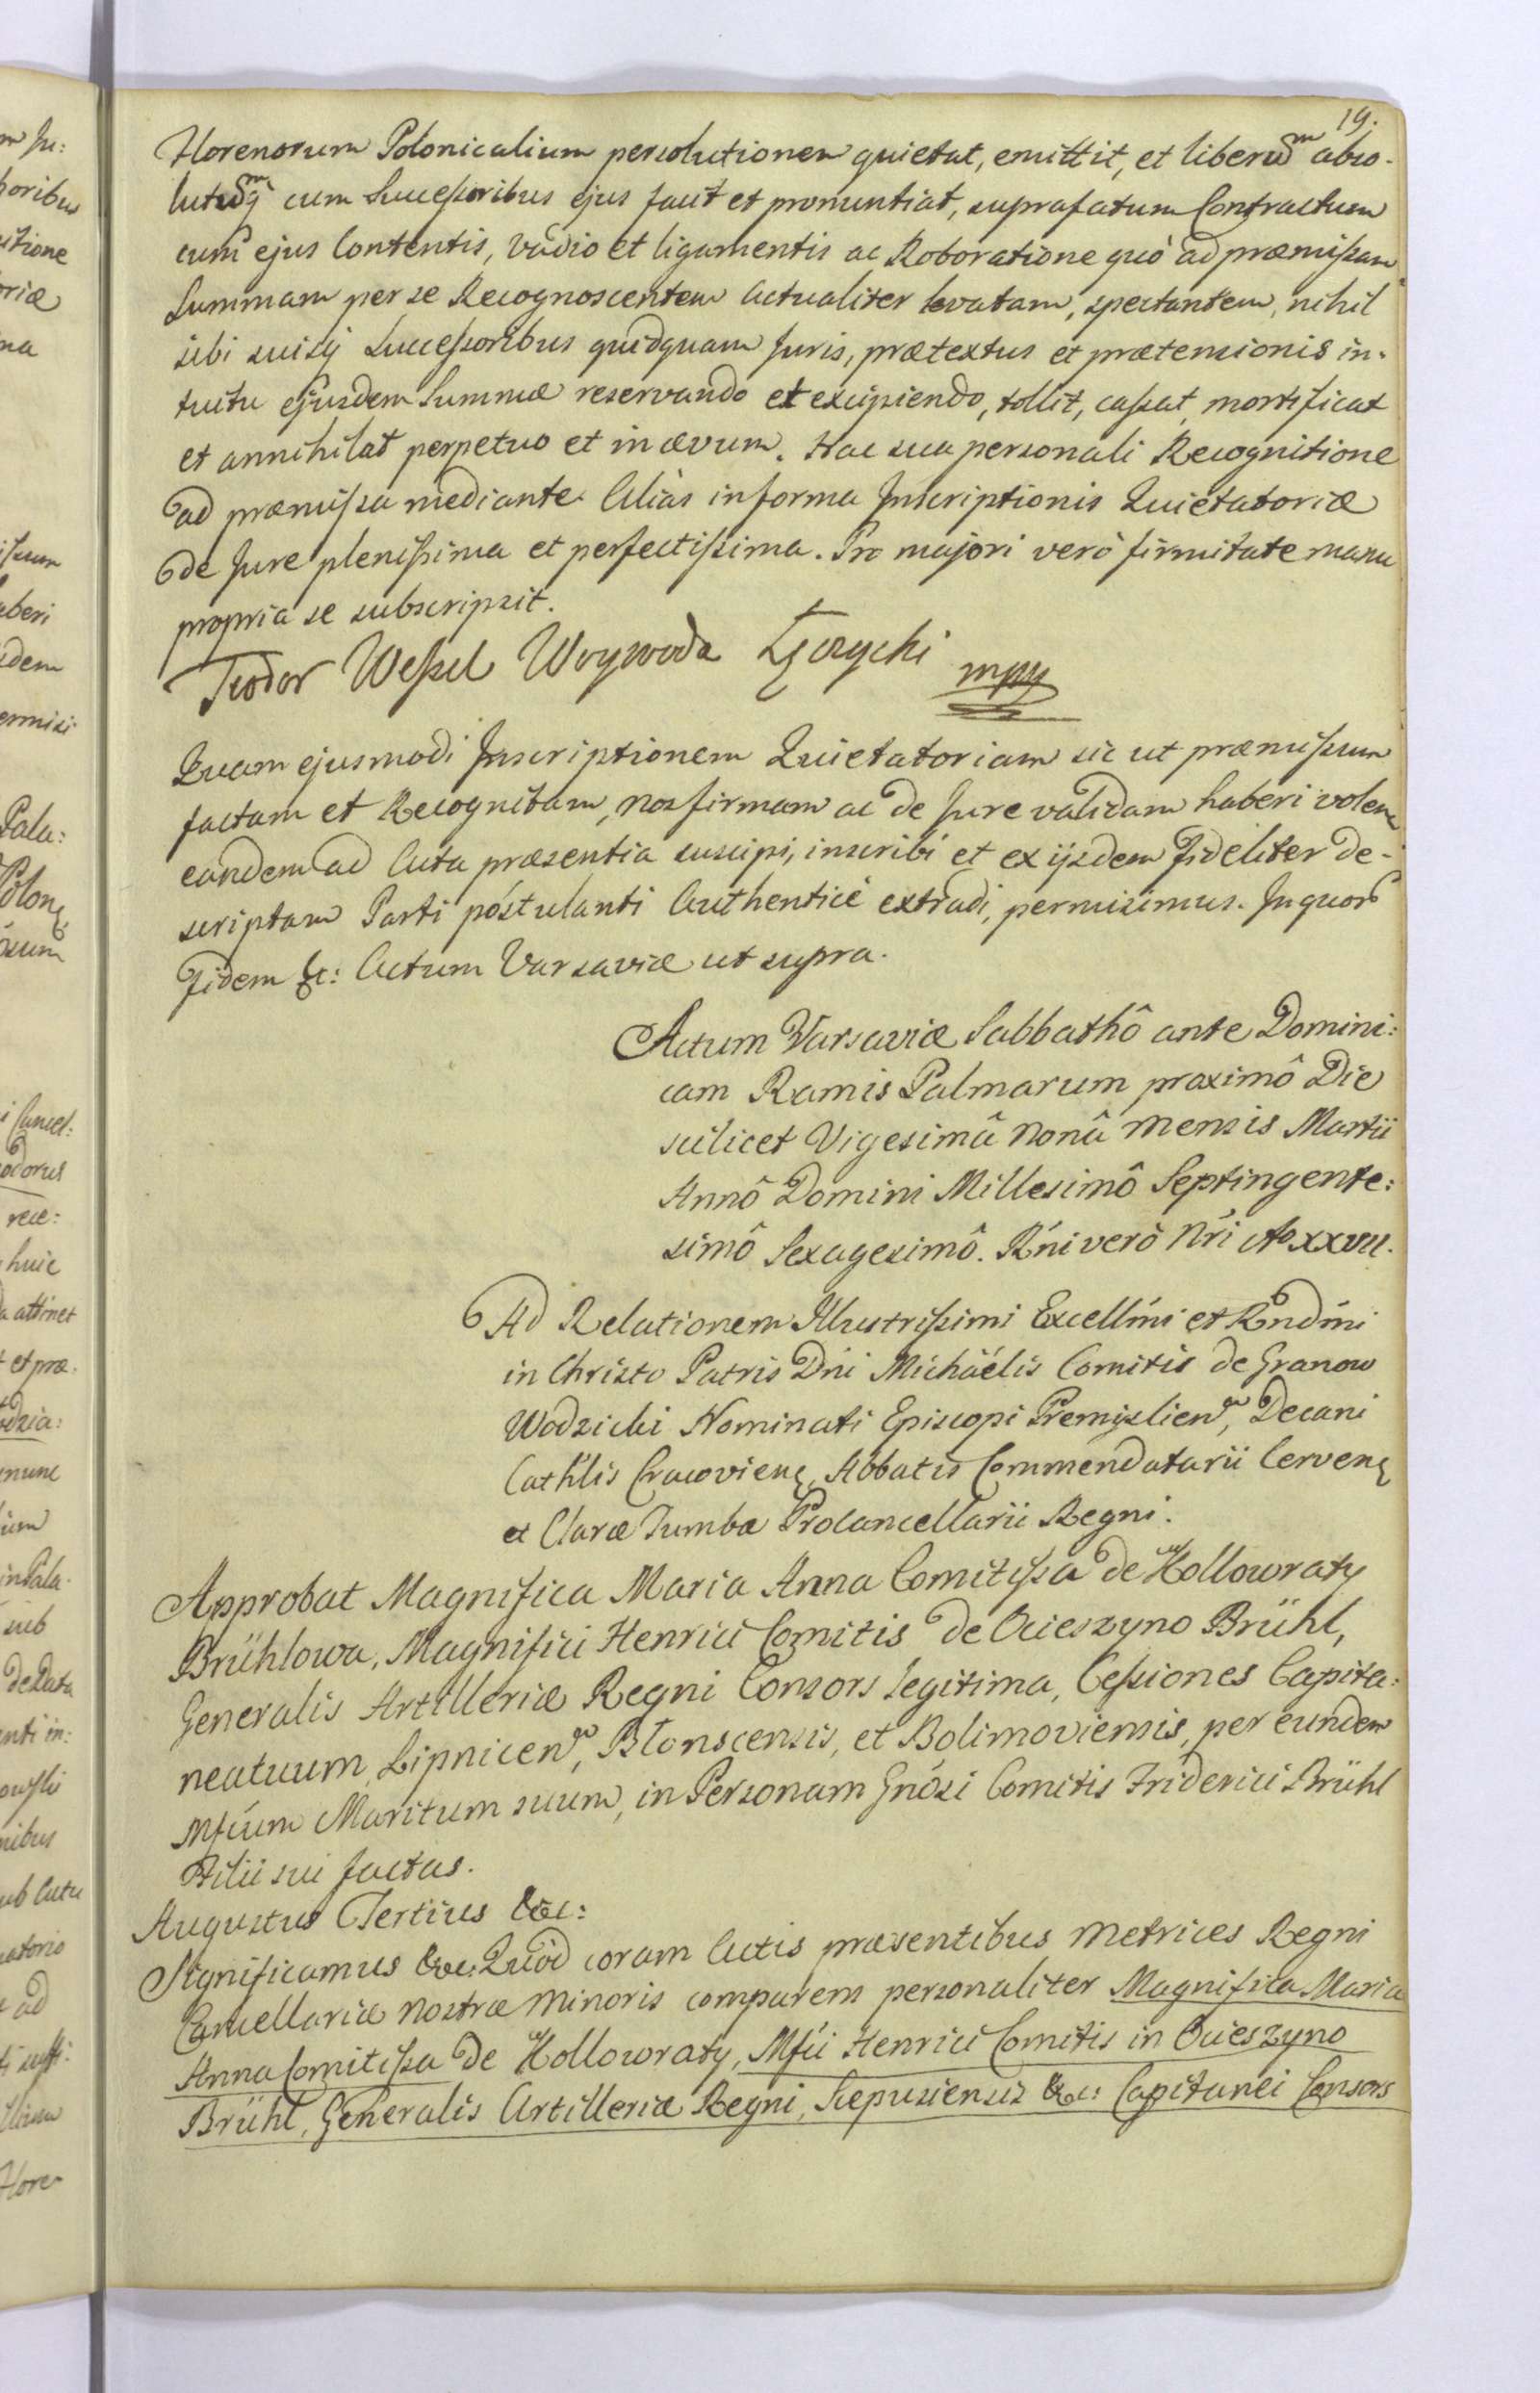 19.
Florenorum Polonicalium persolutionem quietat, emittit, et liberū abso-
lutūq cum Successoribus ejus facit et pronuntiat, suprafatum Contractum
cum ejus Contentis, Vadio et ligamentis ac Roboratione quò ad præmissam
Summam per se Recognoscentem Actualiter levatam, spectantem, nihil
sibi suisq Successoribus quidquam Juris, prætextus et prætensionis in-
tuitu ejusdem Summæ reservando et excipiendo, tollit, cassat, mortificat
et annihilat perpetuo et in ævum. Hac sua personali Recognitione
ad præmissa mediante. Aliàs in forma Inscriptionis Quietatoriæ
de Jure plenissima et perfectissima. Pro majori verò firmitate manu
propria se subscripsit.
Teodor Wessel Woywoda Łęczycki mpp
Quam ejusmodi Inscriptionem Quietatoriam sic ut præmissum
factam et Recognitam, nos firmam ac de Jure validam haberi volen
eandem ad Acta præsentia suscipi, inscribi et ex ijsdem Fideliter de-
scriptam Parti postulanti Authenticè extradi, permisimus. In quor
Fidem &c: Actum Varsaviæ ut supra.
Actum Varsaviæ Sabbathô ante Domini:
cam Ramis Palmarum proximô Die
scilicet Vigesimâ Nonâ mensis Martii
Annô Domini Millesimô Septingente:
simô Sexagesimô. Rńi verò Nŕi Ao XXVII.
Ad Relationem Illustrissimi Excellḿi et Rńdḿi
in Christo Patris Dńi Michäélis Comitis de Granow
Wodzicki Nominati Episcopi Premislien, Decani
Cathlis Cracovien, Abbatis Commendatarii Cerven
et Claræ Tumbæ Procancellarii Regni.
Approbat Magnifica Maria Anna Comitissa de Kollowraty
Brühlowa, Magnifici Henrici Comitis de Ocieszyno Brühl,
Generalis Artilleriæ Regni Consors legitima, Cessiones Capita:
neatuum Lipnicen, Błonscensis, et Bolimoviensis, per eundem
Mfićum Maritum suum, in Personam Gnósi Comitis Friderici Brühl
Filii sui factas.
Augustus Tertius &c:
Significamus &c: Quòd coram Actis præsentibus Metrices Regni
Cancellariæ Nostræ Minoris comparens personaliter Magnifica Maria
Anna Comitissa de Kollowraty, Mfíci Henrici Comitis in Ocieszyno
Brühl, Generalis Artilleriæ Regni, Scepusiensis &c: Capitanei Consors